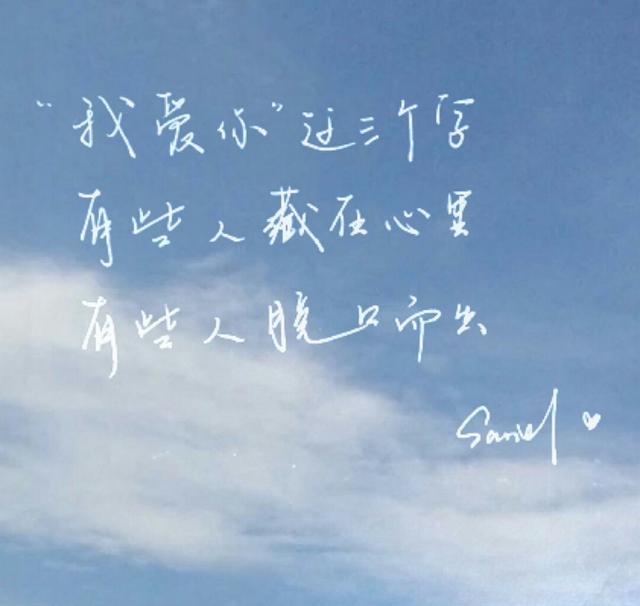 “我爱你”这三个字
有些人藏在心里
有些人脱口而出
Saniel ♥